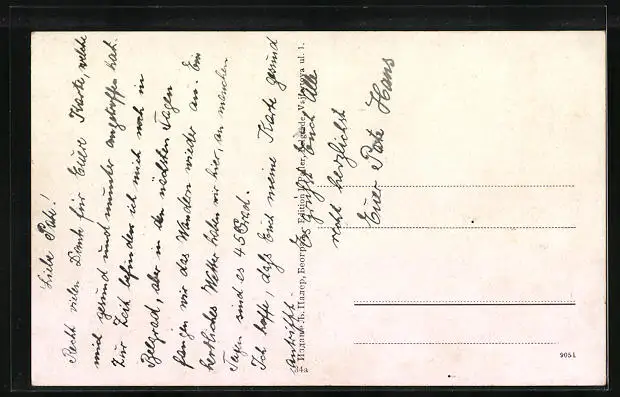 Liebe Pat.!
Recht vielen Dank für Euere Karte, welche
mich gesund und munter angetroffen hat.
Zur Zeit befinden ich mich noch in
Belgrad, aber in den nächsten Tagen
fangen wir das Wandern wieder an. Ein
herrliches Wetter haben wir hier, an manchen
Tagen sind es 45 Grad.
Ich hoffe, daß Euch meine Karte gesund
antrifft.
Es grüßt Euch Alle
recht herzlichst
Euer Pate Hans
Издатель Палер, Београд. Edition Paler, Belgrade, ul. 1.
34a
9051